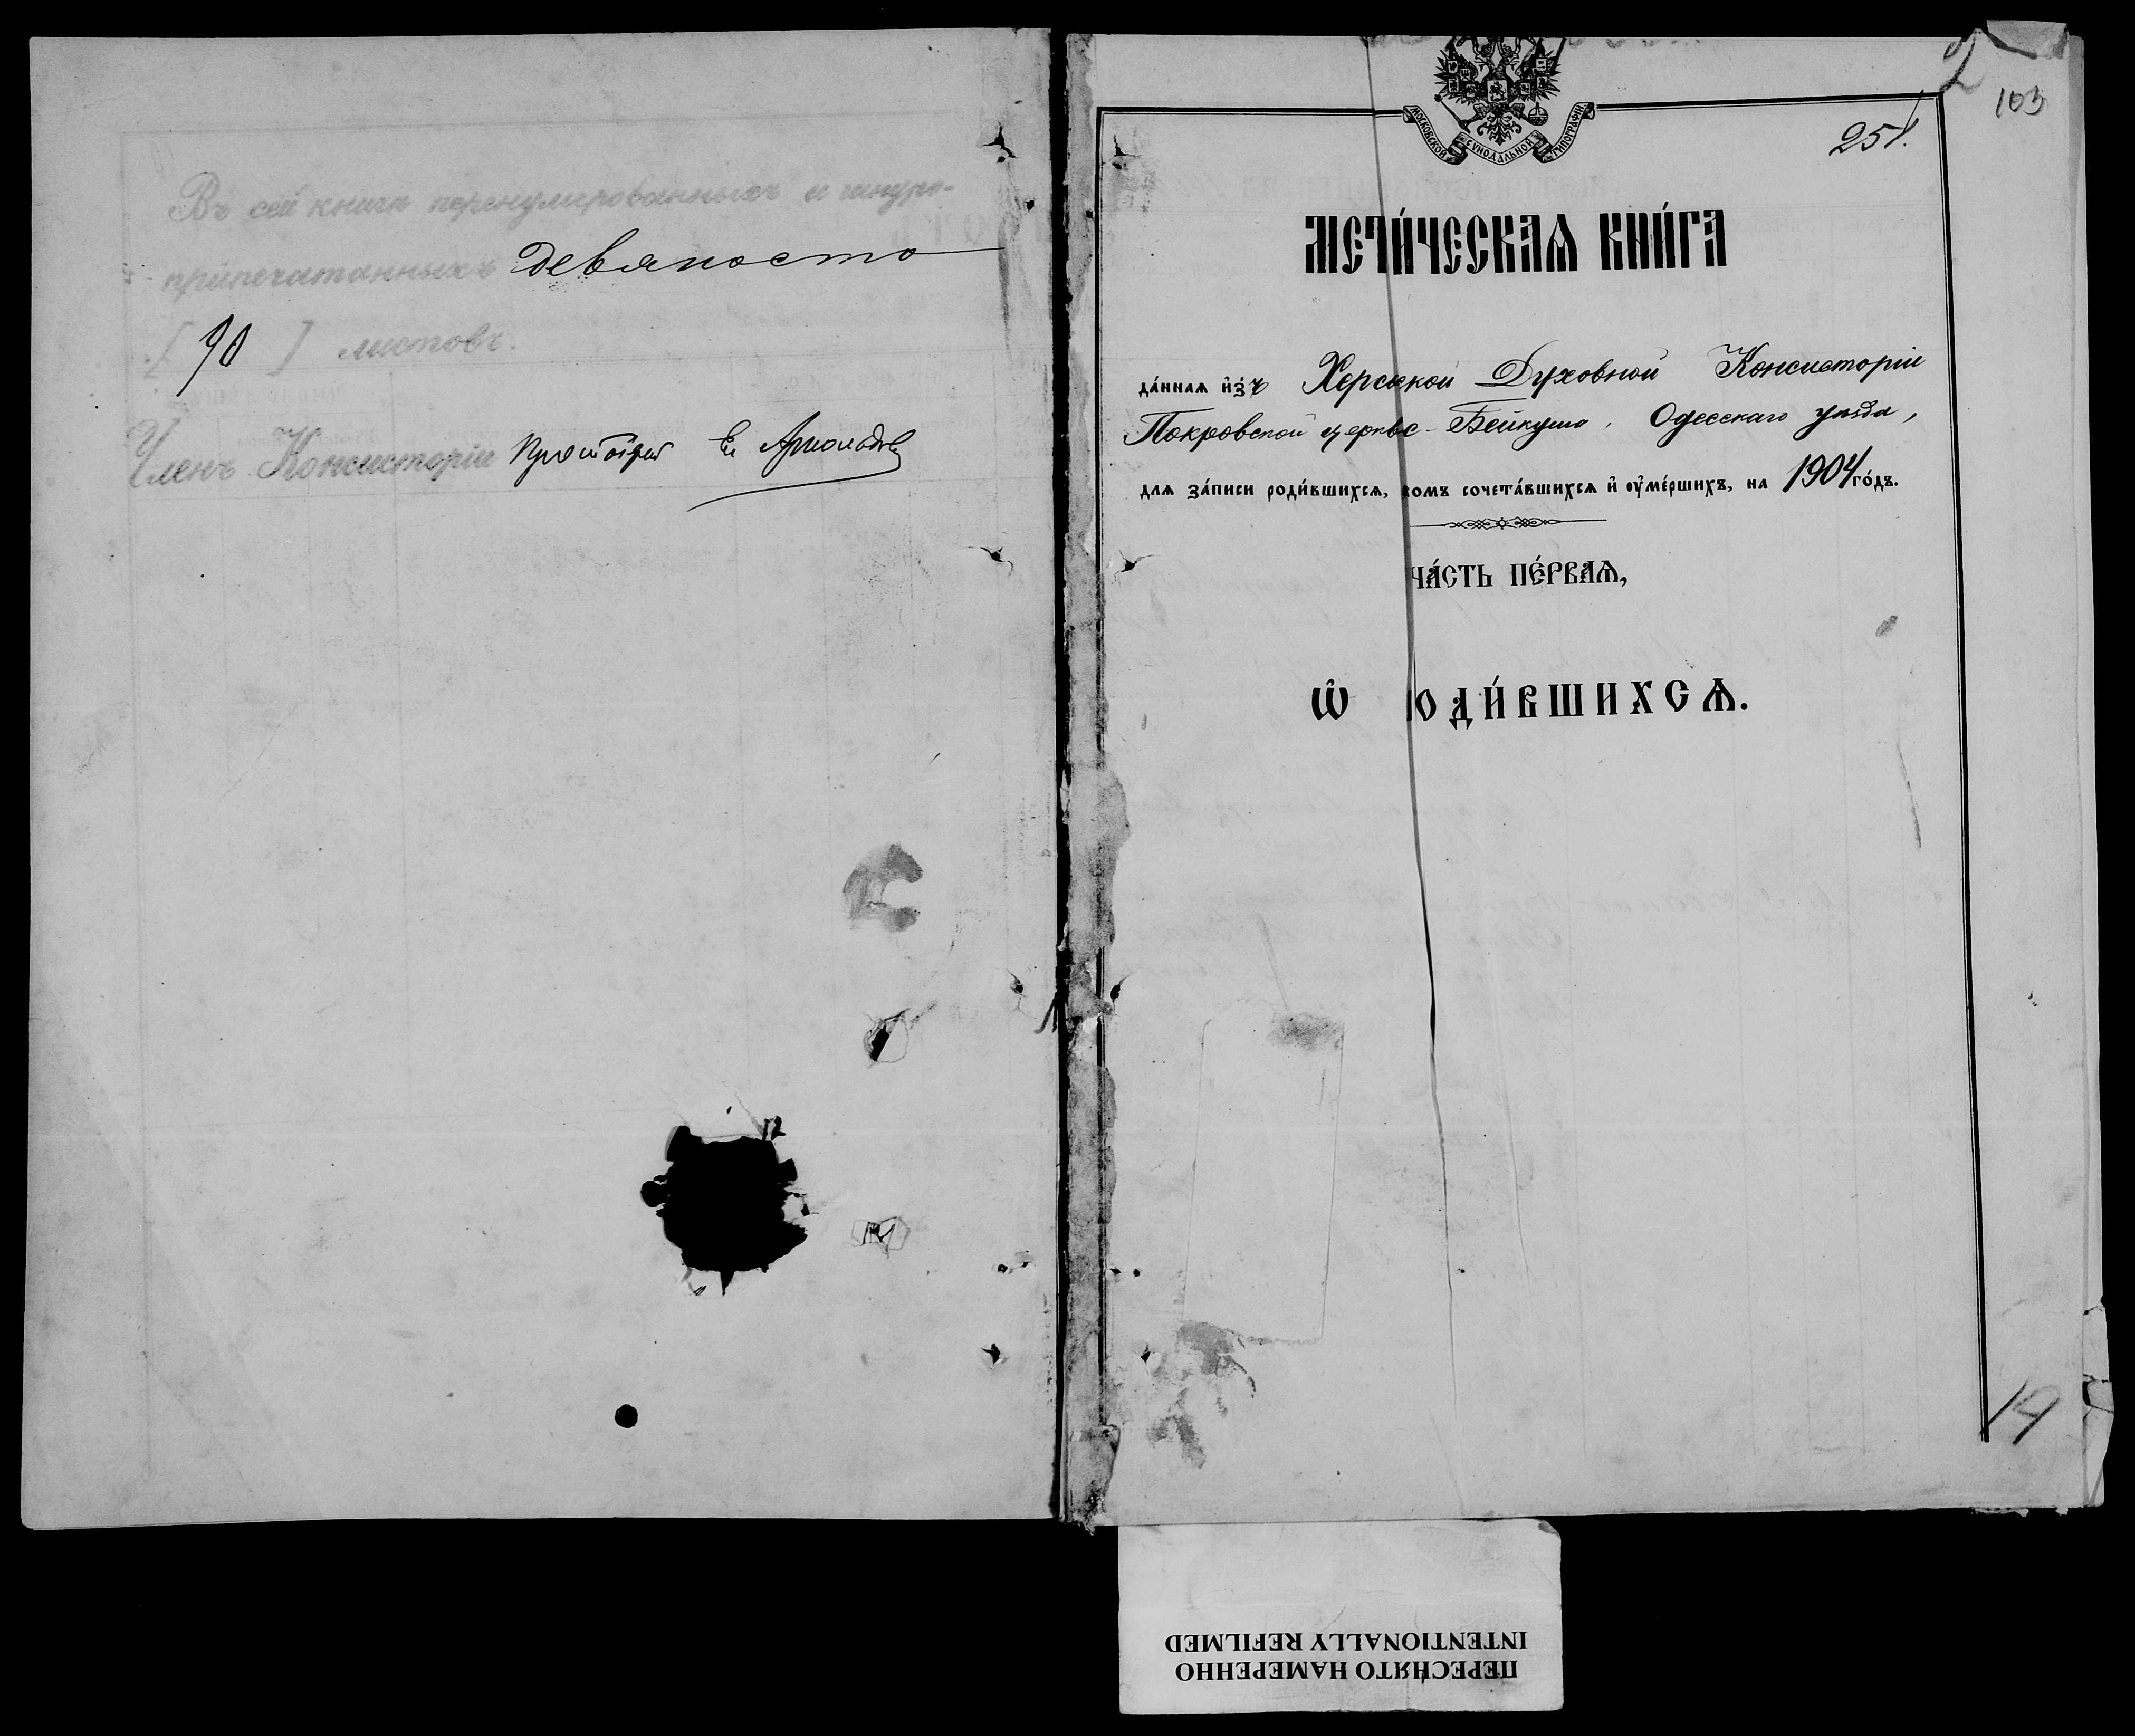 Въ сей книгѣ перенумерованныхъ и шнуро-
припечатанныхъ девяносто
[ 90 ] листовъ.
Членъ Консисторіи Протоіерей
2
103
МОСКОВСКОЙ СѴНОДАЛЬНОЙ ТИПОГРАФІИ
251.
МЕТРИ́ЧЕСКАѦ КНИ́ГА
да́ннаѧ и҆з̾ Херсонской Духовной Консисторіи
Покровской церкви с. Бейкуша, Одесскаго уѣзда,
длѧ за́писи роди́вшихсѧ, комъ сочета́вшихсѧ и҆ оу҆ме́ршихъ, на 1904 го́дъ.
ЧА́СТЬ ПЕ́РВАѦ,
Ѽ ОДИ́ВШИХСѦ.
14
ПЕРЕСНЯТО НАМЕРЕННО
INTENTIONALLY REFILMED